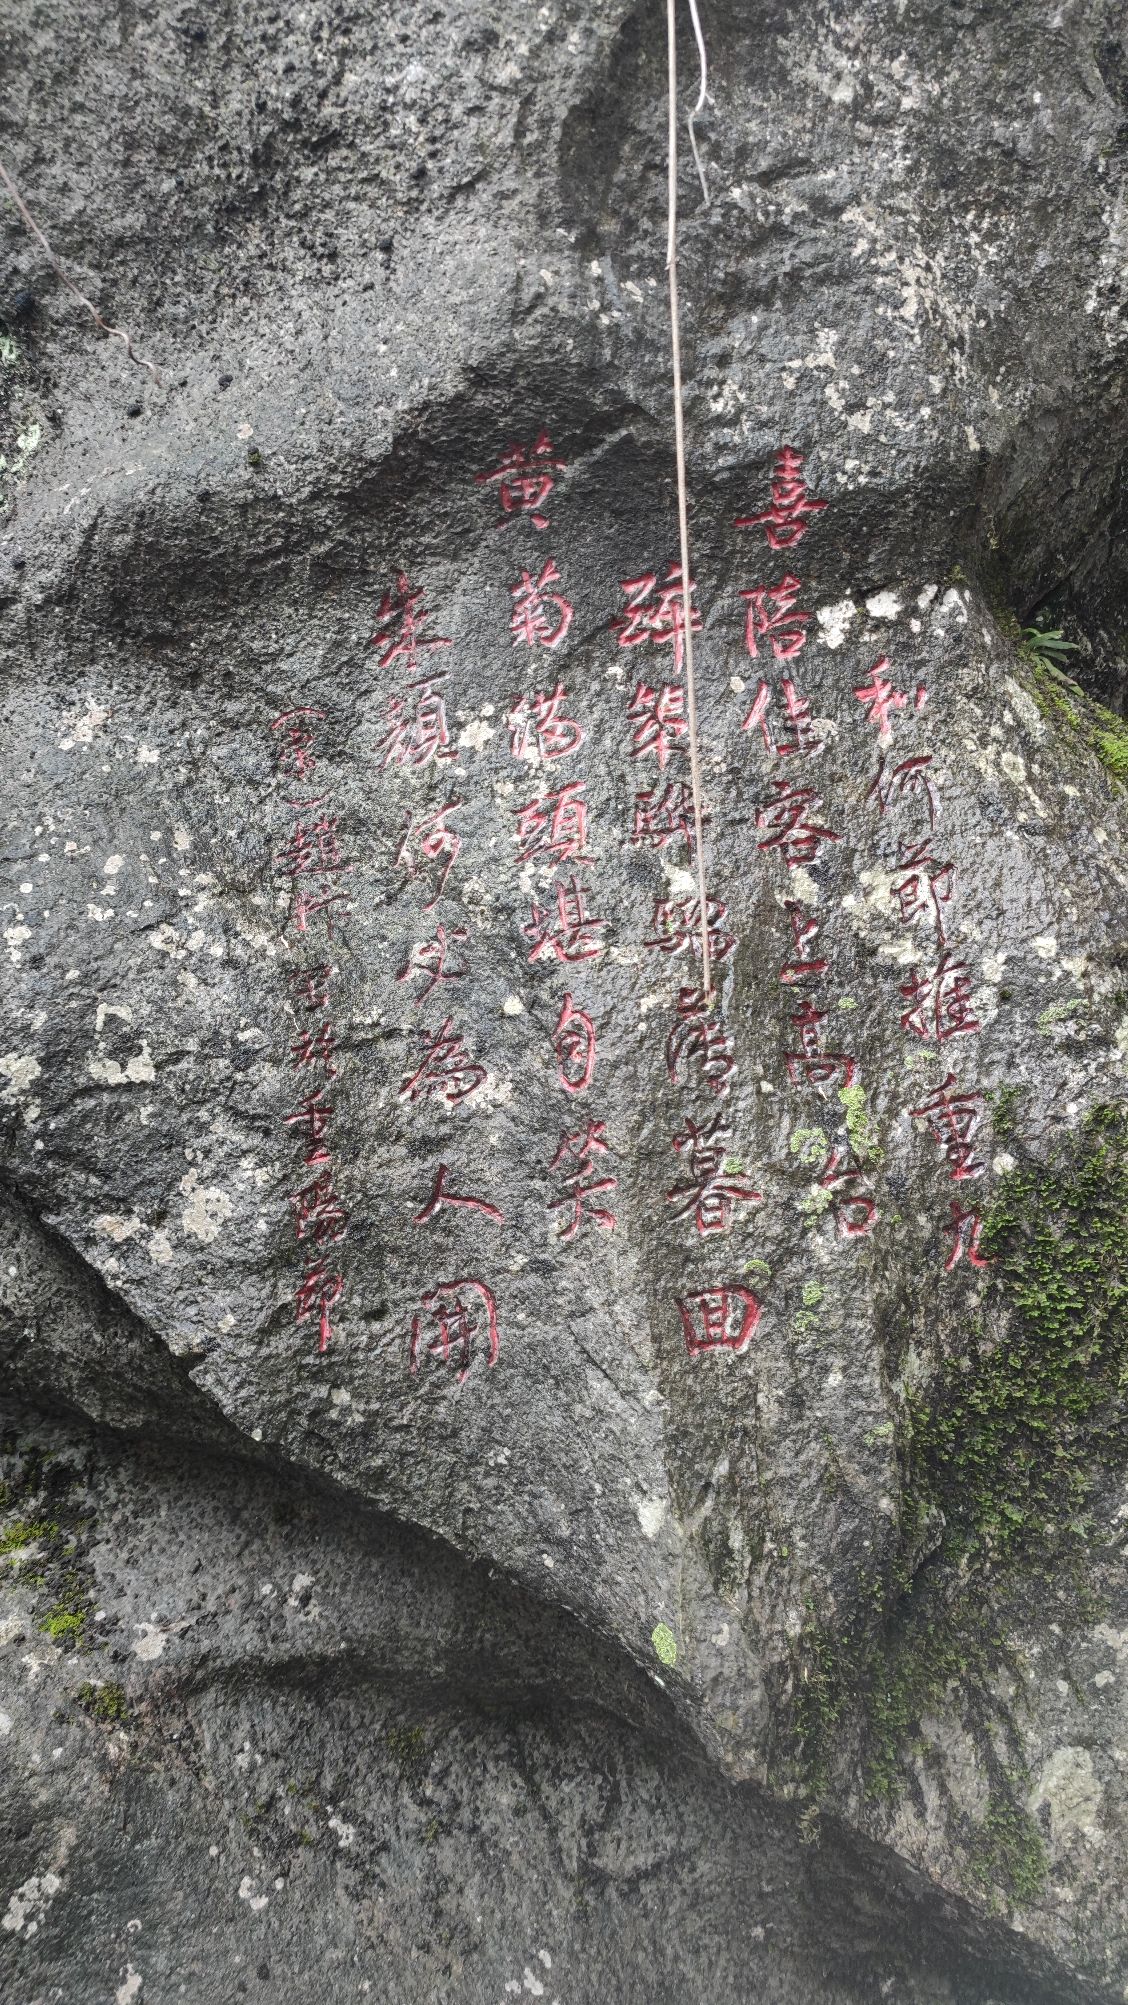 和何節推重九
喜陪佳客上高台
醉策薄暮回
黄菊满頭堪自笑
朱顏何必為人開
(宋)趙抃於重陽節